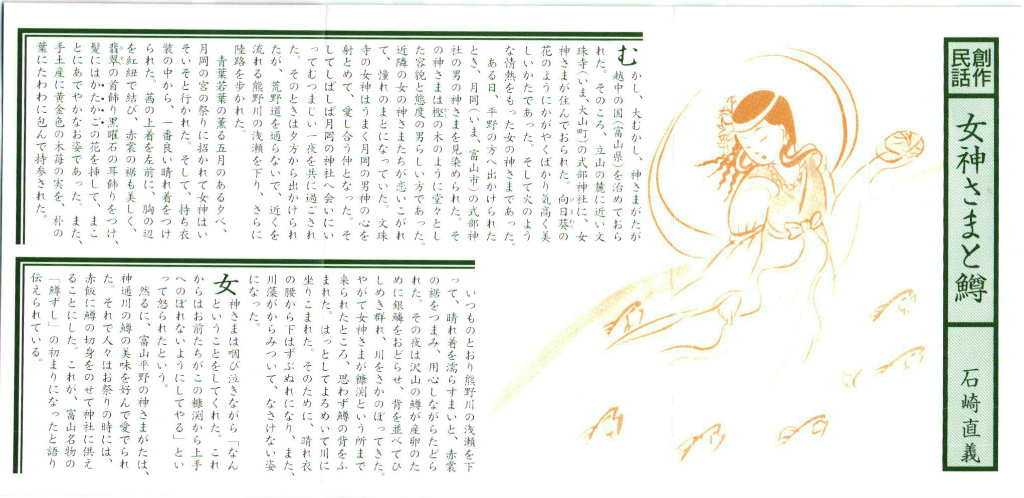 創作
民話
女神さまと鱒
石崎直義
むかし、大むかし、神さまがたが
越中の国(富山県)を治めておら
れた。そのころ、立山の麓に近い文
珠寺(いま、大山町)の式部神社に、女
神さまが住んでおられた。向日葵の
花のようにかがやくばかり気高く美
しいかたであった。そして火のよう
な情熱をもった女の神さまであった。
ある日、平野の方へ出かけられた
とき、月岡(いま、富山市)の式部神
社の男の神さまを見染められた。そ
の神さまは樫の木のように堂々とし
た容貌と態度の男らしい方であった。
近隣の女の神さまたちが恋いこがれ
て、憧れのまとになっていた。文珠
寺の女神はうまく月岡の男神の心を
射とめて、愛し合う仲となった。そ
してしばしば月岡の神社へ会いにい
ってむつまじい一夜を共に過ごされ
た。そのときは夕方から出かけられ
たが、荒野道を通らないで、近くを
流れる熊野川の浅瀬を下り、さらに
陸路を歩かれた。
青葉若葉の薫る五月のある夕べ、
月岡の宮の祭りに招かれて女神はい
そいそと行かれた。そして、持ち衣
装の中から、一番良い晴れ着をつけ
られた。茜の上着を左前に、胸の辺
を紅紐で結び、赤裳の裾も美しく、
翡翠の首飾り黒曜石の耳飾りをつけ、
髪にはかたかごの花を挿して、まこ
とにあでやかなお姿であった。また、
手土産に黄金色の木苺の実を、朴の
葉にたわわに包んで持参された。
いつものとおり熊野川の浅瀬を下
って、晴れ着を濡らすまいと、赤裳
の裾をつまみ、用心しながらたどら
れた。その夜は沢山の鱒が産卵のた
めに銀鱗をおどらせ、背を並べてひ
しめき群れ、川をさかのぼってきた。
やがて女神さまが糠渕という所まで
来られたところ、思わず鱒の背をふ
まれた。はっとしてよろめいて川に
坐りこまれた。そのために、晴れ衣
の腰から下はずぶぬれになり、また、
川藻がからみついて、なさけない姿
になった。
女神さまは咽び泣きながら「なん
ということをしてくれた。これ
からはお前たちがこの糠渕から上手
へのぼれないようにしてやる」とい
って怒られたという。
然るに、富山平野の神さまがたは、
神通川の鱒の美味を好んで愛でられ
た。それで人々はお祭りの時には、
赤飯に鱒の切身をのせて神社に供え
ることにした。これが、富山名物の
「鱒ずし」の初まりになったと語り
伝えられている。